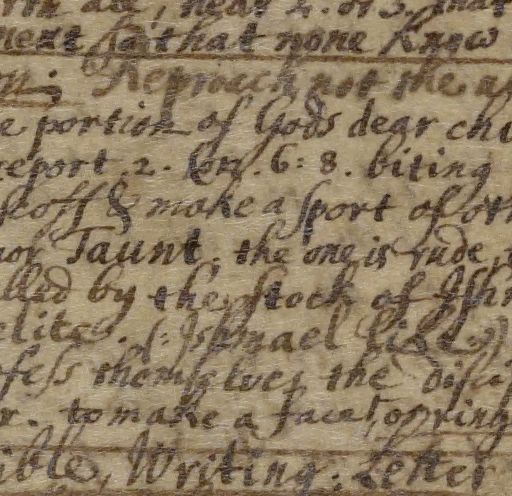 all, near 2. or 3. that
next so that none know
on; Reproach not the
e portion of Gods dear chi
report. 2. Cor. 6: 8. biting
scoff & make a sport of oth
nor Taunt. the one is rude,
lled by the stock of Ish
elite. d: Ishmael like
fess themselves the disci
r. to make a face, or
ible, Writing; Letter